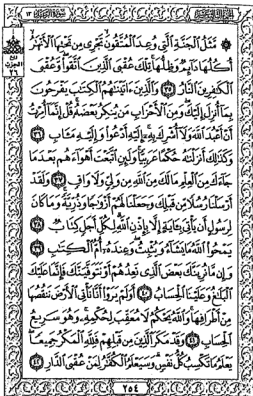 سورة الرعد ١٣
۞ مَّثَلُ ٱلْجَنَّةِ ٱلَّتِى وُعِدَ ٱلْمُتَّقُونَ تَجْرِى مِن تَحْتِهَا ٱلْأَنْهَٰرُ
أُكُلُهَا دَآئِمٌ وَظِلُّهَا تِلْكَ عُقْبَى ٱلَّذِينَ ٱتَّقَوا۟ وَّعُقْبَى
ٱلْكَٰفِرِينَ ٱلنَّارُ ٣٥ وَٱلَّذِينَ ءَاتَيْنَٰهُمُ ٱلْكِتَٰبَ يَفْرَحُونَ
بِمَآ أُنزِلَ إِلَيْكَ وَمِنَ ٱلْأَحْزَابِ مَن يُنكِرُ بَعْضَهُۥ قُلْ إِنَّمَآ أُمِرْتُ
أَنْ أَعْبُدَ ٱللَّهَ وَلَآ أُشْرِكَ بِهِۦٓ إِلَيْهِ أَدْعُوا۟ وَإِلَيْهِ مَـَٔابِ ٣٦
وَكَذَٰلِكَ أَنزَلْنَٰهُ حُكْمًا عَرَبِيًّا وَلَئِنِ ٱتَّبَعْتَ أَهْوَآءَهُم بَعْدَمَا
جَآءَكَ مِنَ ٱلْعِلْمِ مَا لَكَ مِنَ ٱللَّهِ مِن وَلِىٍّ وَلَا وَاقٍ ٣٧ وَلَقَدْ
أَرْسَلْنَا رُسُلًا مِّن قَبْلِكَ وَجَعَلْنَا لَهُمْ أَزْوَٰجًا وَذُرِّيَّةً وَمَا كَانَ
لِرَسُولٍ أَن يَأْتِىَ بِـَٔايَةٍ إِلَّا بِإِذْنِ ٱللَّهِ لِكُلِّ أَجَلٍ كِتَابٌ ٣٨
يَمْحُوا۟ ٱللَّهُ مَا يَشَآءُ وَيُثْبِتُ وَعِندَهُۥٓ أُمُّ ٱلْكِتَٰبِ ٣٩
وَإِن مَّا نُرِيَنَّكَ بَعْضَ ٱلَّذِى نَعِدُهُمْ أَوْ نَتَوَفَّيَنَّكَ فَإِنَّمَا عَلَيْكَ
ٱلْبَلَٰغُ وَعَلَيْنَا ٱلْحِسَابُ ٤٠ أَوَلَمْ يَرَوْا۟ أَنَّا نَأْتِى ٱلْأَرْضَ نَنقُصُهَا
مِنْ أَطْرَافِهَا وَٱللَّهُ يَحْكُمُ لَا مُعَقِّبَ لِحُكْمِهِۦ وَهُوَ سَرِيعُ
ٱلْحِسَابِ ٤١ وَقَدْ مَكَرَ ٱلَّذِينَ مِن قَبْلِهِمْ فَلِلَّهِ ٱلْمَكْرُ جَمِيعًا
يَعْلَمُ مَا تَكْسِبُ كُلُّ نَفْسٍ وَسَيَعْلَمُ ٱلْكُفَّٰرُ لِمَنْ عُقْبَى ٱلدَّارِ ٤٢
الحزب
٢٦
٢٥٤